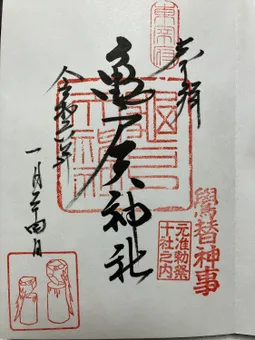 奉拝
東京宿
鷽替神事
元准勅祭
十社之内
亀戸天神社
令和二年
一月二十四日